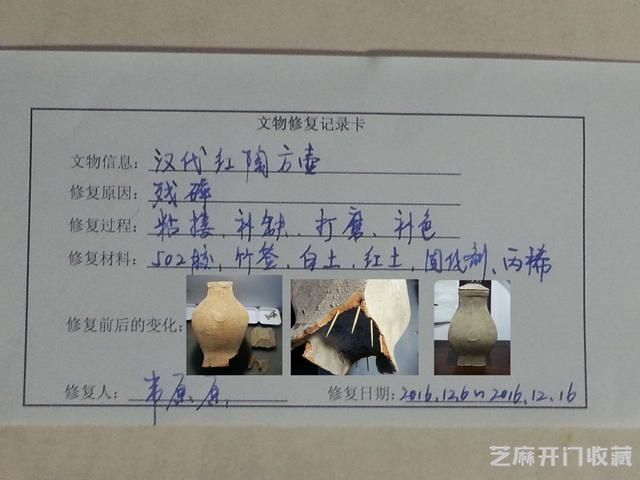 文物修复记录卡
文物信息：汉代红陶方壶
修复原因：残碎
修复过程：粘接、补缺、打磨、补色
修复材料：502胶、竹签、白土、红土、固化剂、丙烯
修复前后的变化：
修复人：
修复日期：2016.12.6~2016.12.16
芝麻开门收藏